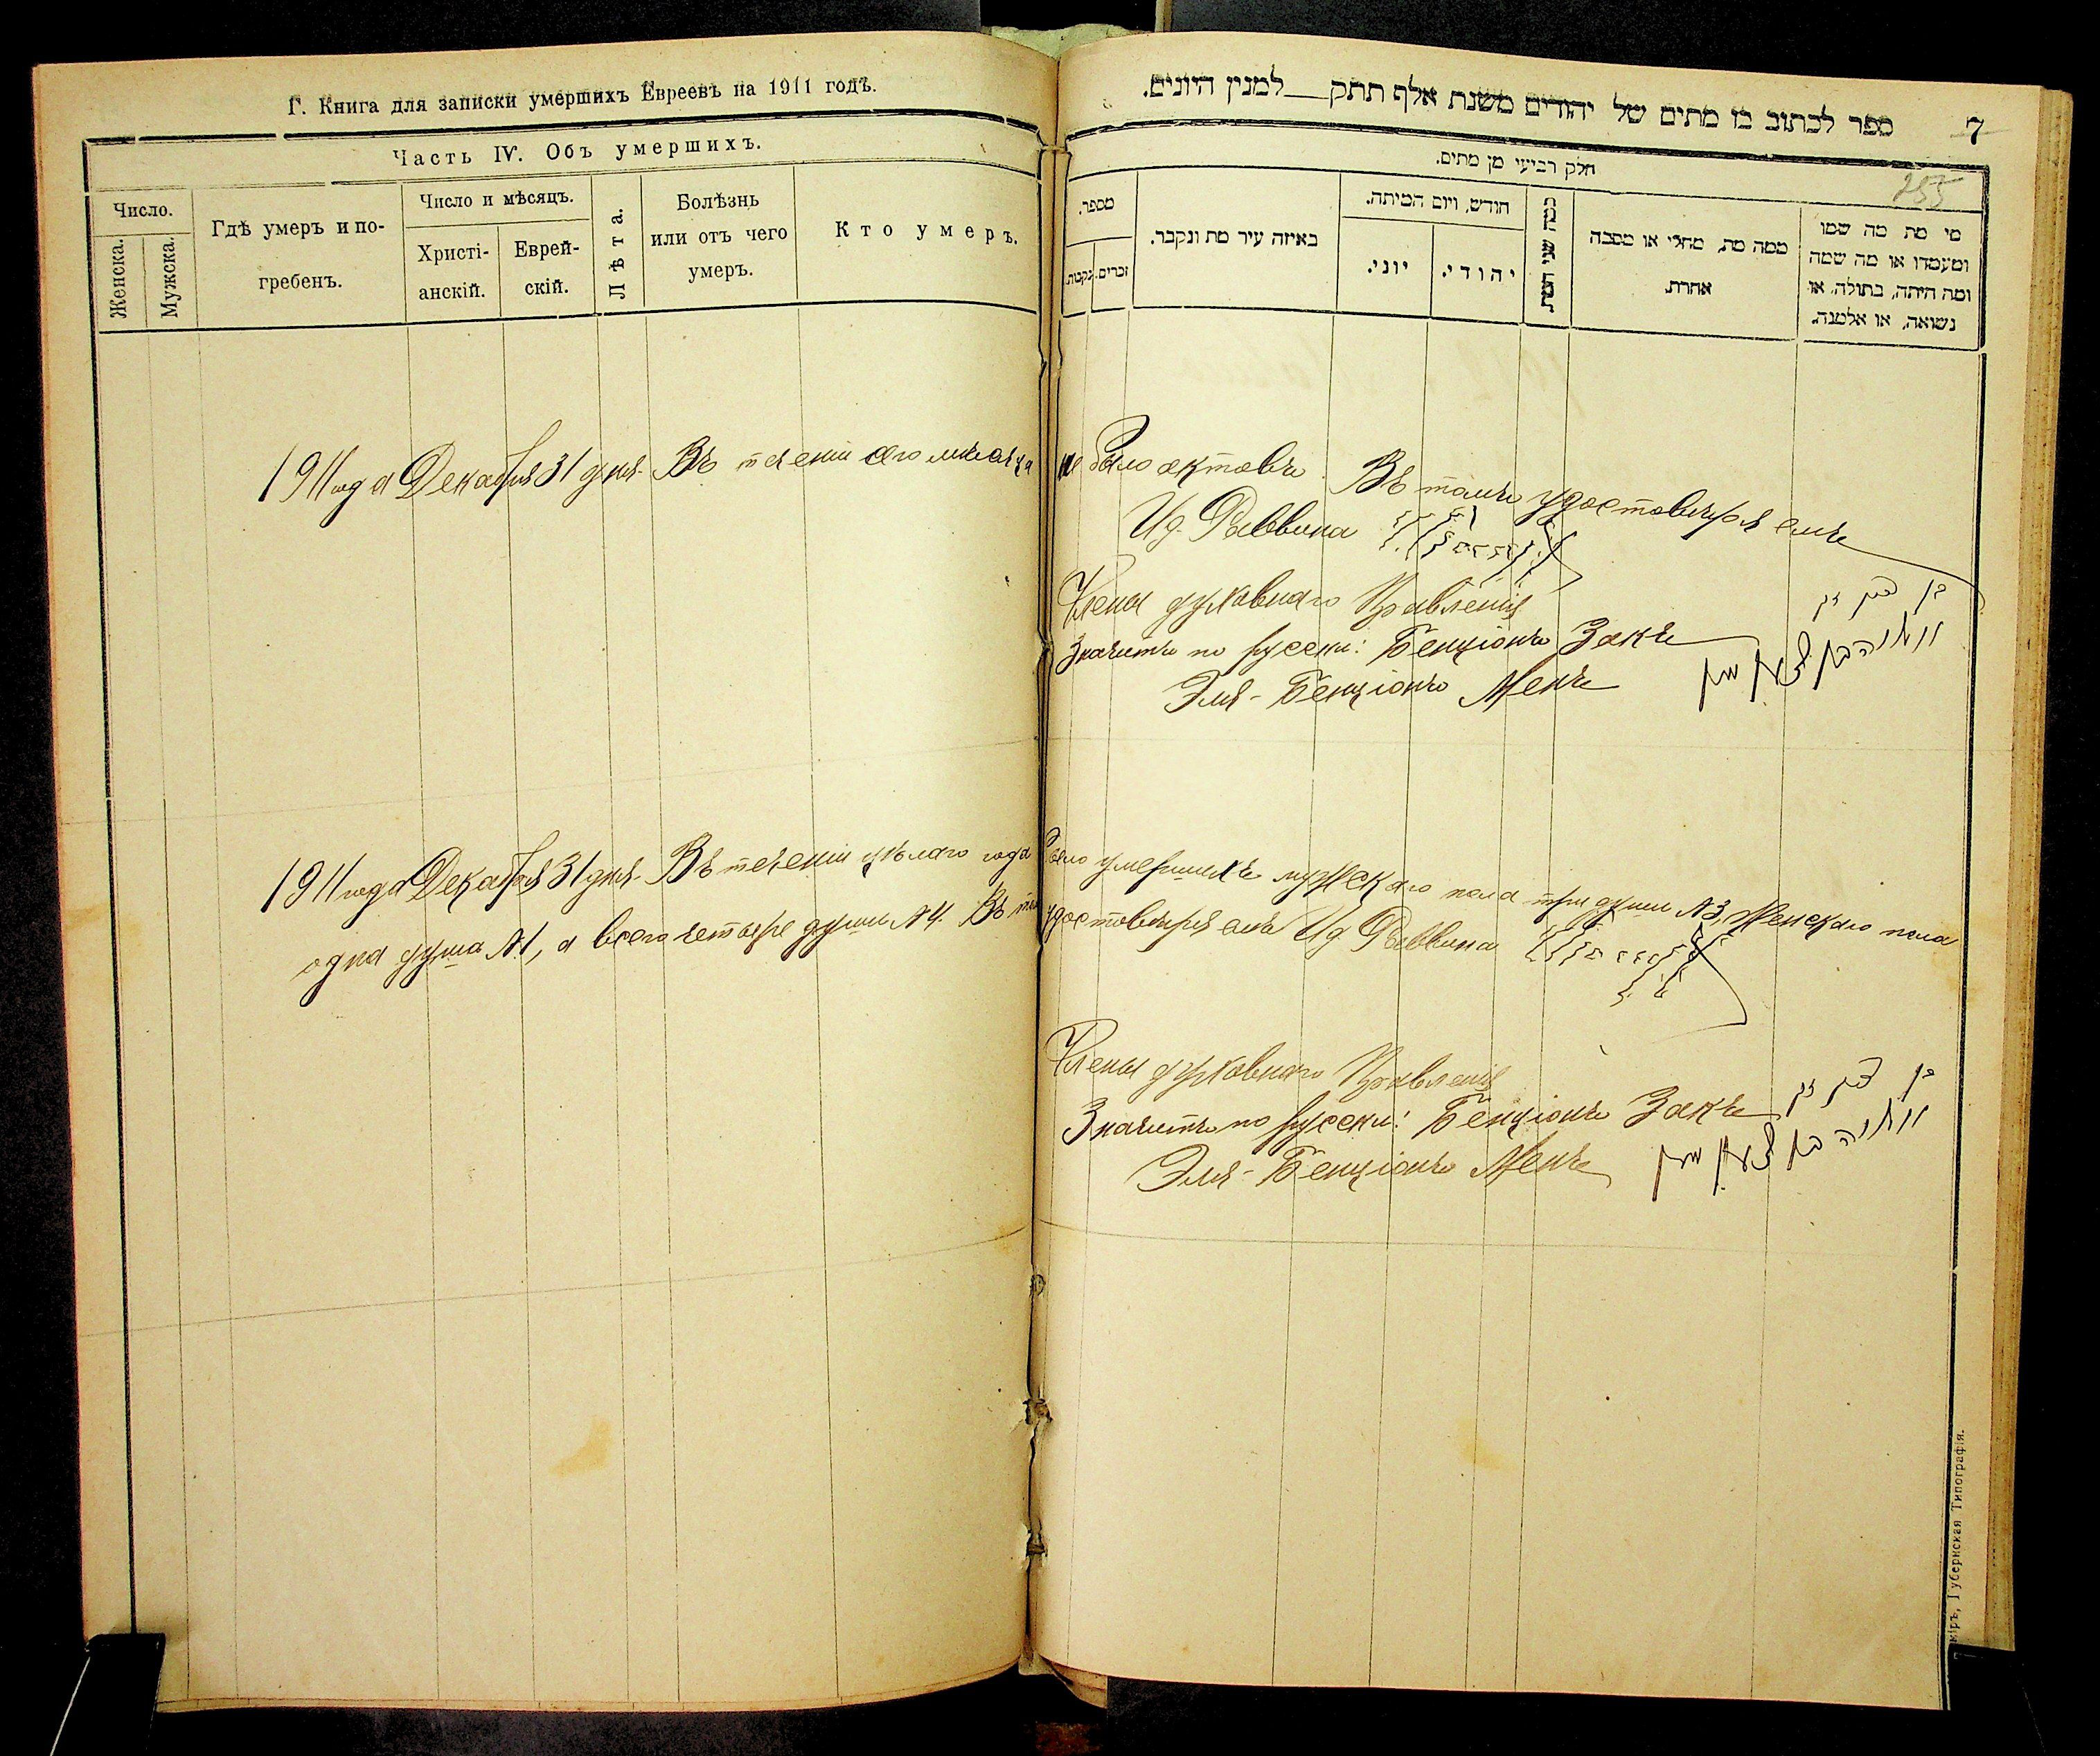 Г. Книга для записки умершихъ Евреевъ на 1911 годъ.
Часть IV. Объ умершихъ.
Число.
Женска.
Мужска.
Гдѣ умеръ и по-
гребенъ.
Число и мѣсяцъ.
Христі-
анскій.
Еврей-
скій.
Лѣта.
Болѣзнь
или отъ чего
умеръ.
Кто умеръ.
ספר לכתוב בו מתים של יהודים משנת אלף תתק למנין היונים.
7
חלק רביעי מן מתים.
255
מספר.
נקבות.
זכרים.
באיזה עיר מת ונקבר.
חודש, ויום המיתה.
יוני.
יהודי.
כמה שני המת
ממה מת, מחלי או מסבה
אחרת.
מי מת מה שמו
ומעמדו או מה שמה
ומה היתה, בתולה, או
נשואה, או אלמנה.
1911 года Декабря 31 дня. Въ теченіи сего мѣсяца не было актовъ. Въ томъ удостовѣряемъ
И.д. Раввина
Члены духовнаго Правленія
Значитъ по русски: Бенціонъ Закъ
Эля-Бенціонъ Менъ
1911 года Декабря 31 дня. Въ теченіи цѣлаго года было умершихъ мужскаго пола три души №3, Женскаго пола
одна душа №1, а всего четыре души №4. Въ томъ удостовѣряемъ И.д. Раввина
Члены духовнаго Правленія
Значитъ по русски: Бенціонъ Закъ
Эля-Бенціонъ Менъ
Губернская Типографія.